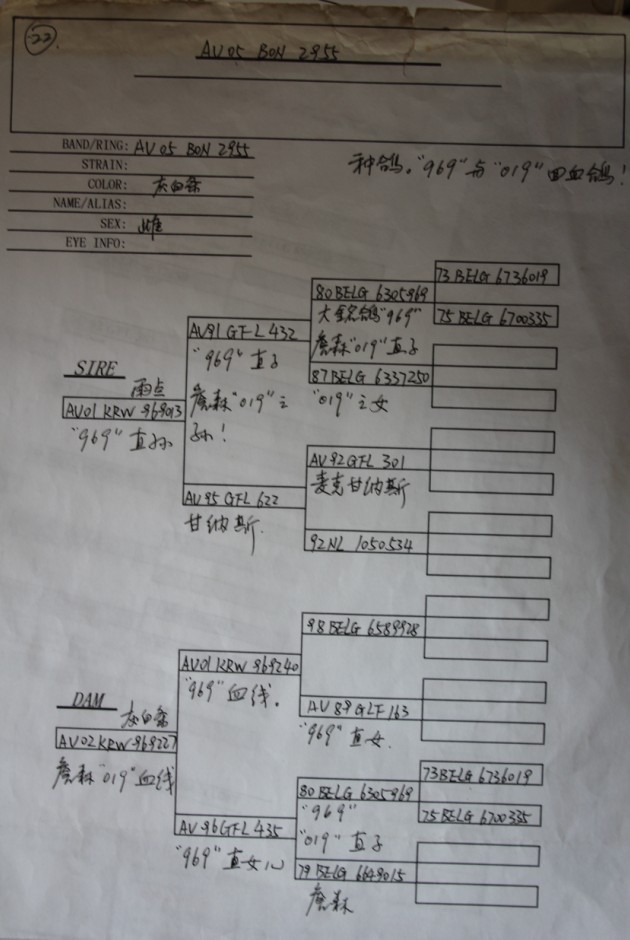 22.
AU 05 BON 2955
BAND/RING: AU 05 BON 2955
STRAIN:
COLOR: 灰白条
NAME/ALIAS:
SEX: 雌
EYE INFO:
种鸽。"969"与"019"回血鸽!
73 BELG 6736019
80 BELG 6305969
大铭鸽"969"
75 BELG 6700335
詹森"019"直子
AU91 GFL 432
"969"直子
87 BELG 6337250
"019"之女
詹森"019"之
孙!
SIRE
雨点
AU01 KRW 969013
"969"直孙
AU92 GFL 301
麦克甘纳斯
AU95 GFL 622
甘纳斯.
92 NL 1050534
98 BELG 6589928
AU01 KRW 969240
"969"血线.
AU 89 GLF 163
"969"直女.
DAM
灰白条
AU02 KRW 969227
詹森"019"血线
73 BELG 6736019
80 BELG 6305969
"969"
75 BELG 6700335
"019"直子
AU96 GFL 435
"969"直女
79 BELG 6649015
詹森